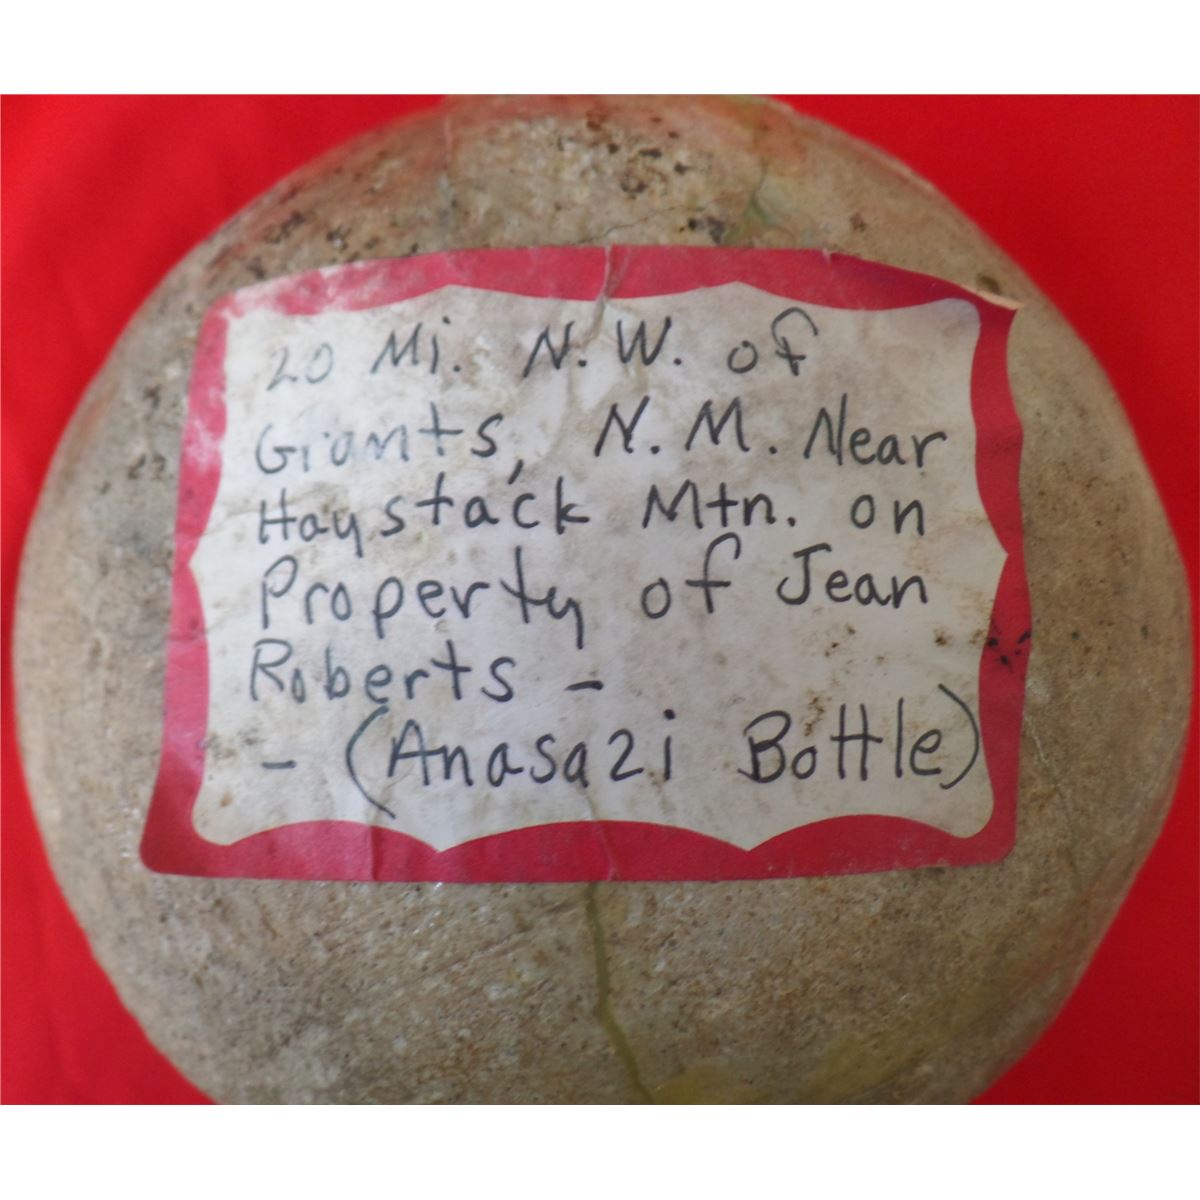 20 Mi. N.W. of
Giants, N.M. Near
Haystack Mtn. on
Property of Jean
Roberts -
- (Anasazi Bottle)